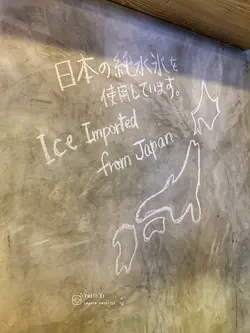 日本の純水氷を
使用しています。
Ice Imported
from Japan